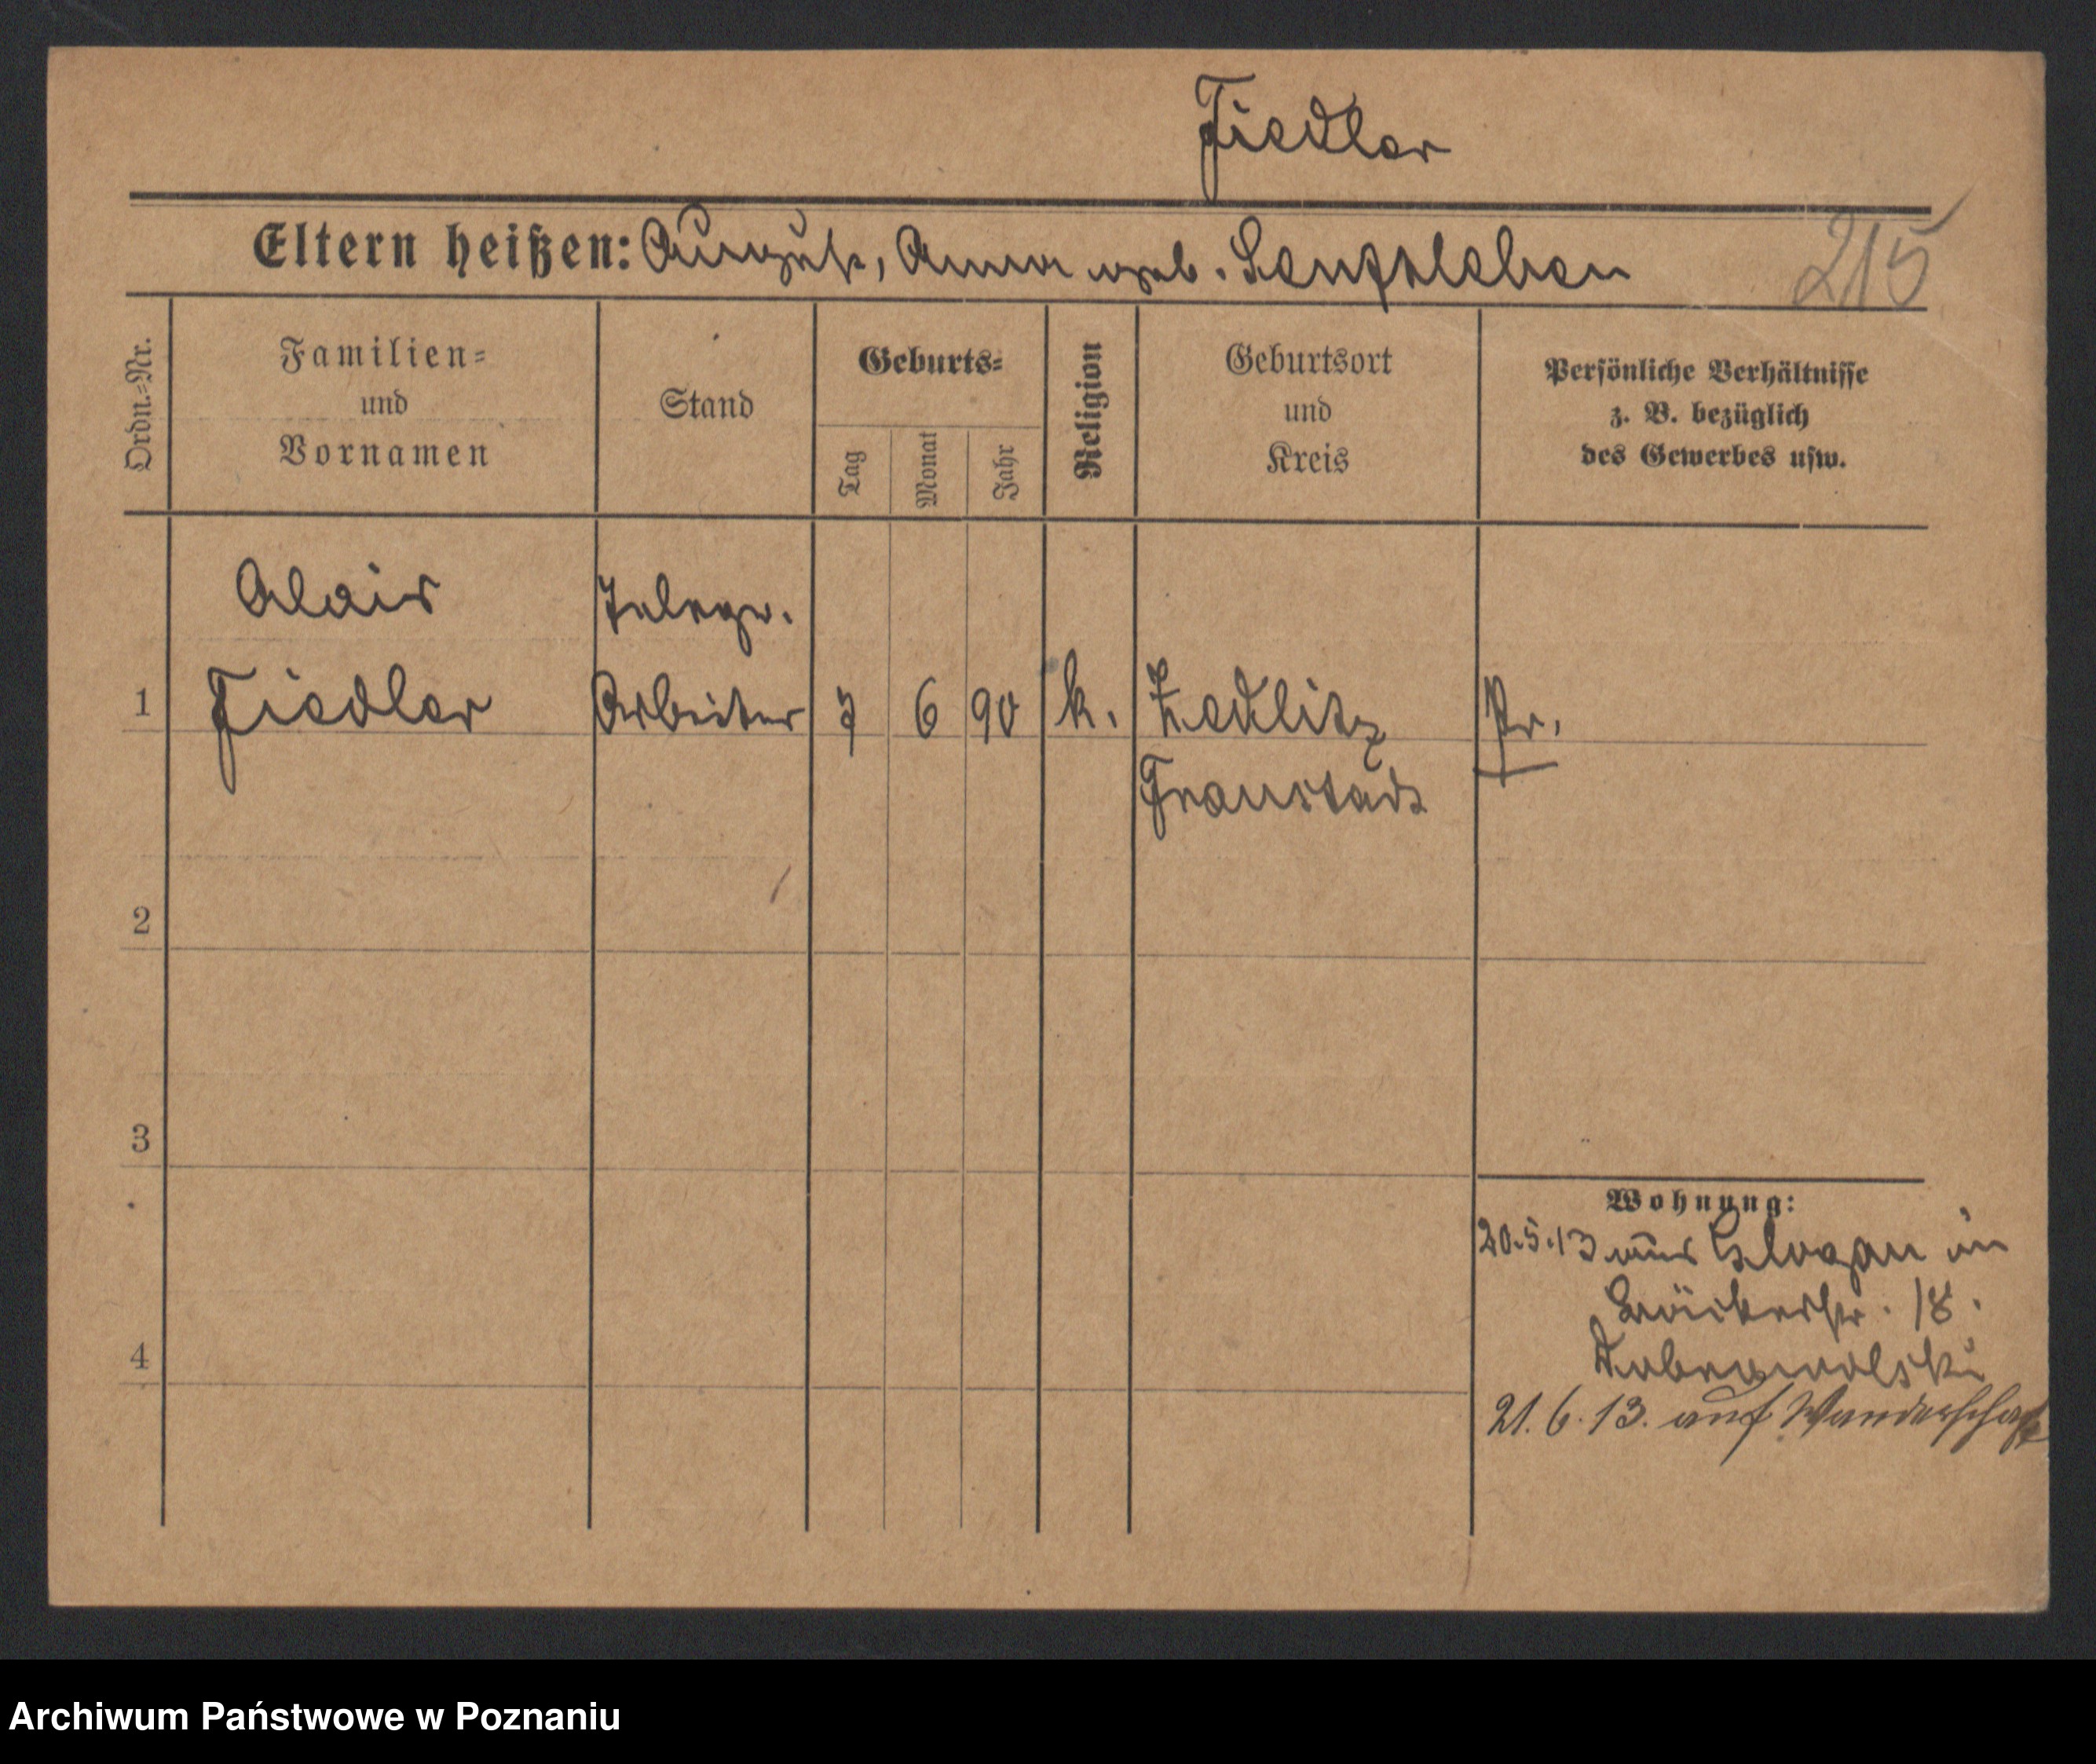 Fiedler
Eltern heißen: August, Anna geb. Senftleben
215
Ordn.-Nr.
Familien-
und
Vornamen
Stand
Geburts-
Tag
Monat
Jahr
Religion
Geburtsort
und
Kreis
Persönliche Verhältnisse
z. B. bezüglich
des Gewerbes usw.
Alois
Telegr.
1
Fiedler
Arbeiter
7
6
90
k.
Zedlitz
Pr.
Fraustadt
2
3
4
Wohnung:
20.5.13 aus Glogau in
18.
21.6.13. auf Wanderschaft
Archiwum Państwowe w Poznaniu